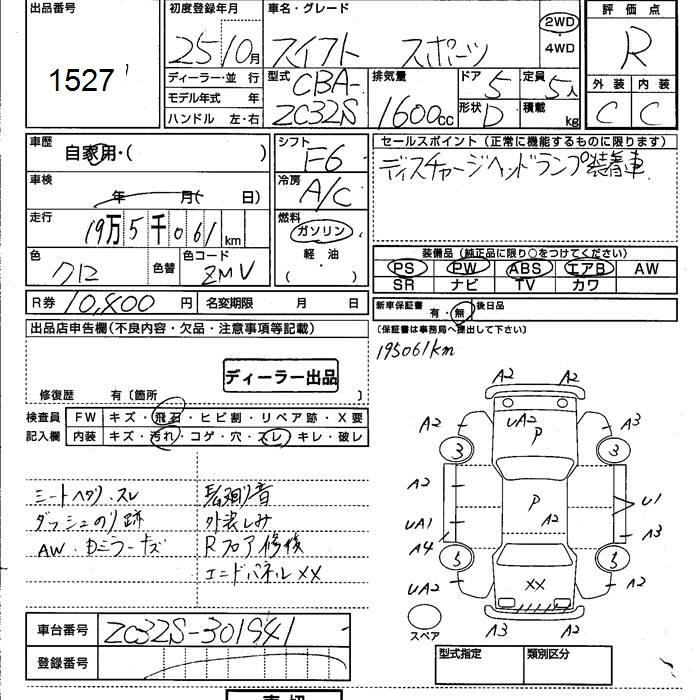 出品番号
1527
初度登録年月
25 10月
車名・グレード
スイフト スポーツ
2WD
・
4WD
評価点
R
外装 内装
C C
ディーラー・並行
モデル年式 年
ハンドル 左・右
型式
CBA-
ZC32S
排気量
1600cc
ドア 5
形状 D
定員 5人
積載 kg
車歴
自家用・( )
車検
年 月( 日)
走行
19万5千061km
色
クロ
色替
色コード
ZMV
シフト
F6
冷房
A/C
燃料
ガソリン
軽・油
( )
セールスポイント(正常に機能するものに限ります)
ディスチャージヘッドランプ装着車
装備品(純正品に限り○をつけてください)
PS PW ABS エアB AW
SR ナビ TV カワ
R券 10,800 円
名変期限 月 日
新車保証書 有・無 後日品
(保証書は事務局へ提出して下さい)
195061km
出品店申告欄(不良内容・欠品・注意事項等記載)
ディーラー出品
修復歴 有〔箇所 〕
検査員
記入欄
FW キズ・飛石・ヒビ割・リペア跡・X要
内装 キズ・汚れ・コゲ・穴・スレ・キレ・破レ
シートヘタリ・スレ
ダッシュのり跡
AW・Dミラーキズ
外装しみ
Rフロア修後
エンドパネルXX
A2 A2
A2 UA2 P A3
3 3
A2 P A2 U1
UA1 A3
A4
5 5
UA2 XX A2
A3 A2
スペア
車台番号 ZC32S-301941
登録番号
型式指定 類別区分